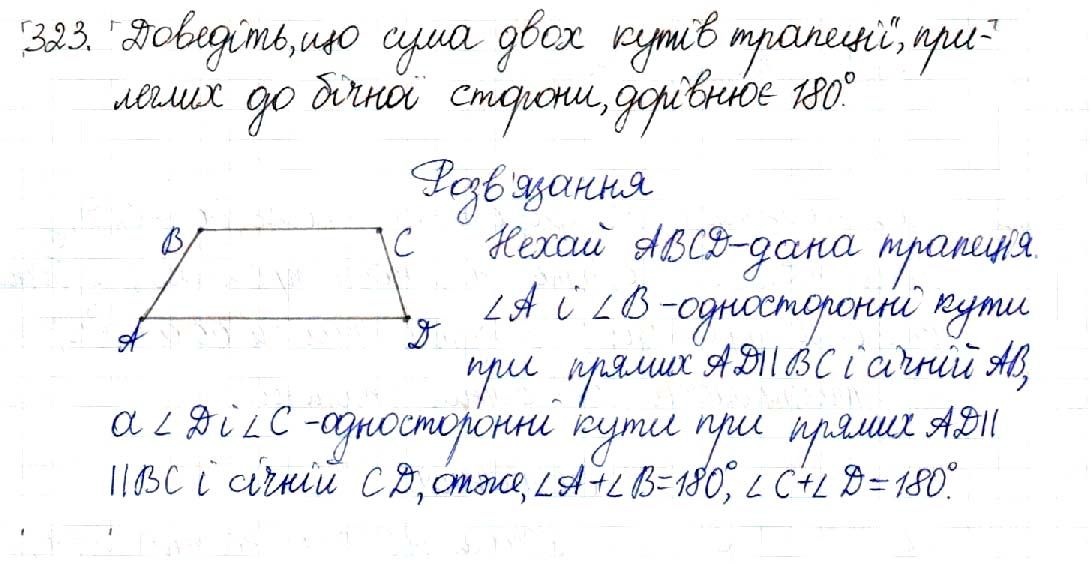 323. Доведіть, що сума двох кутів трапеції, при-
леглих до бічної сторони, дорівнює 180°.
Розв'язання
B C Нехай ABCD-дана трапеція.
∠A і ∠B -односторонні кути
A D
при прямих AD||BC і січній AB,
а ∠D і ∠C -односторонні кути при прямих AD||
||BC і січній CD, отже, ∠A+∠B=180°, ∠C+∠D=180°.